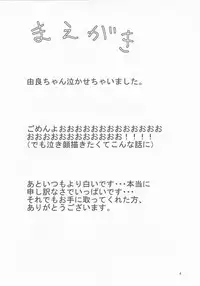 まえがき
由良ちゃん泣かせちゃいました。
ごめんよおおおおおおおおおおおおお
おおおおおおおおおおおお！！！！
(でも泣き顔描きたくてこんな話に)
あといつもより白いです･･･本当に
申し訳なさでいっぱいです･･･
それでもお手に取ってくれた方、
ありがとうございます。